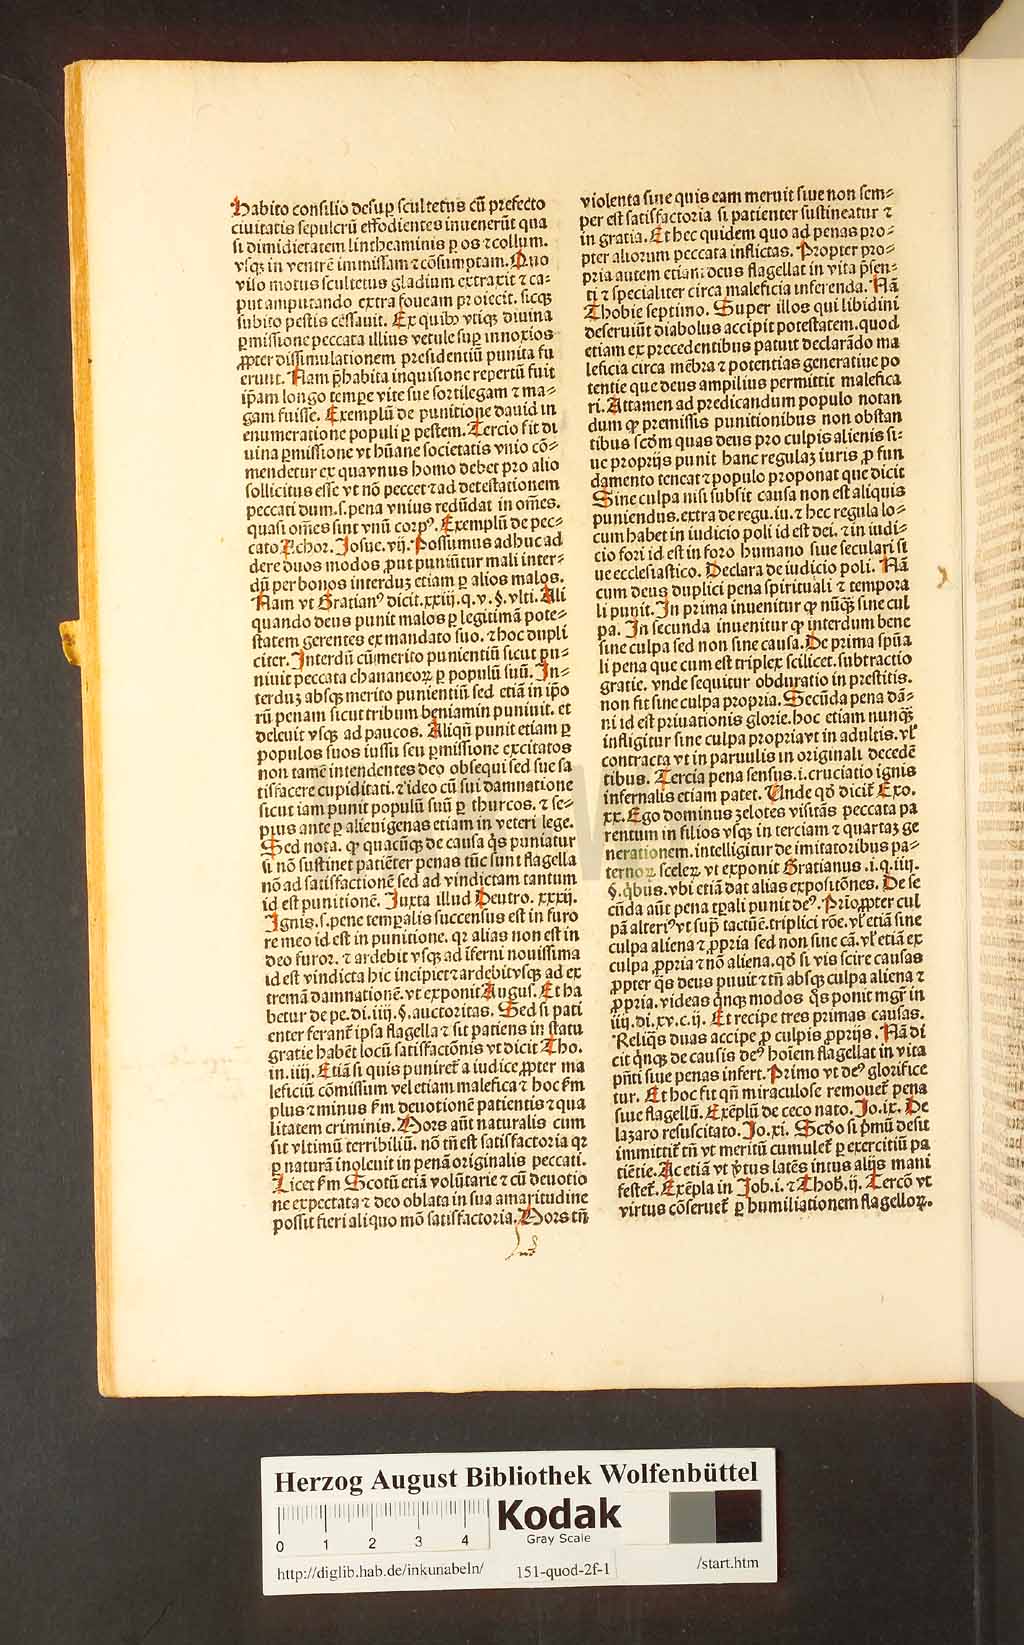 Habito consilio desuꝑ scultetus cū prefecto
ciuitatis sepulcrū effodientes inuenerūt qua
si dimidietatem lintheaminis ꝑ os ⁊ collum.
vsqꝫ in ventrē immissam ⁊ cōsumptam. Quo
viso motus scultetus gladium extraxit ⁊ ca-
put amputando extra foueam proiecit. sicqꝫ
subito pestis cessauit. Ex quibꝰ vtiqꝫ diuina
ꝑmissione peccata illius vetule suꝑ innoxios
ꝓpter dissimulationem presidentiū punita fu
erunt. Nam p̄habita inquisitione repertū fuit
ip̄am longo tempe vite sue sortilegam ⁊ ma-
gam fuisse. Exemplū de punitione dauid in
enumeratione populi ꝑ pestem. Tercio fit di
uina ꝑmissione vt hūane societatis vnio cō-
mendetur ex qua vnus homo debet pro alio
sollicitus esse vt nō peccet ⁊ ad detestationem
peccati dum.s.pena vnius redūdat in om̄es.
quasi om̄es sint vnū corpꝰ. Exemplū de pec-
cato Achor. Josue. vij. Possumus adhuc ad
dere duos modos ꝓut puniūtur mali inter-
dū per bonos interduꝫ etiam ꝑ alios malos.
Nam vt Gratianꝰ dicit. xxiij. q. v. §. vlti. Ali
quando deus punit malos ꝑ legitimā pote-
statem gerentes ex mandato suo. ⁊ hoc dupli
citer. Interdū cū merito punientiū sicut pu-
niuit peccata chananeoꝝ ꝑ populū suū. In-
terduꝫ absqꝫ merito punientiū sed etiā in ip̄o
rū penam sicut tribum beniamin puniuit. et
deleuit vsqꝫ ad paucos. Aliqn̄ punit etiam ꝑ
populos suos iussu seu ꝑmissione excitatos
non tamē intendentes deo obsequi sed sue sa
tisfacere cupiditati. ⁊ ideo cū sui damnatione
sicut iam punit populū suū ꝑ thurcos. ⁊ se-
pius ante ꝑ alienigenas etiam in veteri lege.
Sed nota. qꝫ quacūqꝫ de causa q̇s puniatur
si nō sustinet patiēter penas tūc sunt flagella
nō ad satisfactionē sed ad vindictam tantum
id est punitionē. Juxta illud Deutro. xxxij.
Ignis.s.pene temꝑalis succensus est in furo
re meo id est in punitione. qꝛ alias non est in
deo furor. ⁊ ardebit vsqꝫ ad īferni nouissima
id est vindicta hic incipiet ⁊ ardebit vsqꝫ ad ex
tremā damnationē. vt exponit Augus. Et ha
betur de pe. di. iiij. §. auctoritas. Sed si pati
enter ferant ipsa flagella ⁊ sit patiens in statu
gratie habēt locū satisfactōnis vt dicit Tho.
in. iiij. Etiā si quis puniret̄ a iudice ꝓpter ma
leficiū cōmissum vel etiam malefica ⁊ hoc ẜm
plus ⁊ minus ẜm deuotionē patientis ⁊ qua
litatem criminis. Mors aūt naturalis cum
sit vltimū terribiliū. nō tn̄ est satisfactoria qꝛ
ꝑ naturā inoleuit in penā originalis peccati.
Licet ẜm Scotū etiā volūtarie ⁊ cū deuotio
ne expectata ⁊ deo oblata in sua amaritudine
possit fieri aliquo mō satisfactoria. Mors tn̄
violenta siue quis eam meruit siue non sem-
per est satisfactoria si patienter sustineatur ⁊
in gratia. Et hec quidem quo ad penas pro-
pter aliorum peccata inflictas. Propter pro-
pria autem etiam deus flagellat in vita p̄sen-
ti ⁊ specialiter circa maleficia inferenda. Nā
Thobie septimo. Super illos qui libidini
deseruiūt diabolus accipit potestatem. quod
etiam ex precedentibus patuit declarādo ma
leficia circa mēbra ⁊ potentias generatiue po
tentie que deus ampilius permittit malefica
ri. Attamen ad predicandum populo notan
dum qꝫ premissis punitionibus non obstan
tibus scdm quas deus pro culpis alienis si-
ue proprijs punit hanc regulaꝫ iuris ꝓ fun
damento teneat ⁊ populo proponat que dicit
Sine culpa nisi subsit causa non est aliquis
puniendus. extra de regu. iu. ⁊ hec regula lo-
cum habet in iudicio poli id est dei. ⁊ in iudi-
cio fori id est in foro humano siue seculari si
ue ecclesiastico. Declara de iudicio poli. Nā
cum deus duplici pena spirituali ⁊ tempora
li punit. In prima inuenitur qꝫ nūqꝫ sine cul
pa. In secunda inuenitur qꝫ interdum bene
sine culpa sed non sine causa. De prima sp̄ua
li pena que cum est triplex scilicet. subtractio
gratie. vnde sequitur obduratio in prestitis.
non fit sine culpa propria. Secūda pena dā-
ni id est priuationis glorie. hoc etiam nunqꝫ
infligitur sine culpa propria vt in adultis. vl̄
contracta vt in paruulis in originali decedē
tibus. Tercia pena sensus.i.cruciatio ignis
infernalis etiam patet. Unde qd̄ dicit̄ Exo.
xx. Ego dominus zelotes visitās peccata pa
rentum in filios vsqꝫ in terciam ⁊ quartaꝫ ge
nerationem. intelligitur de imitatoribus pa-
ternoꝝ sceleꝝ vt exponit Gratianus .i. q. iiij.
§. q̇bus. vbi etiā dat alias expositōnes. De se
cūda aūt pena tp̄ali punit deꝰ. Prio ꝓpter cul
pā alteriꝰ vt sup̄ tactū ē. triplici rōe. vl̄ etiā sine
culpa aliena ⁊ ꝓpria sed non sine cā. vl̄ etiā ex
culpa ꝓpria ⁊ nō aliena. qd̄ si vis scire causas
ꝓpter q̄s deus puuit ⁊ tn̄ absqꝫ culpa aliena ⁊
ꝓpria. videas q̇nqꝫ modos q̄s ponit mgr̄ in
iiij. di. xv. c. ij. Et recipe tres primas causas.
Reliq̄s duas accipe ꝓ culpis ꝓprijs. Nā di
cit q̇nqꝫ de causis deꝰ hoīem flagellat in vita
pn̄ti siue penas infert. Primo vt deꝰ glorifice
tur. Et hoc fit qn̄ miraculose remouet̄ pena
siue flagellū. Exēplū de ceco nato. Jo. ix. De
lazaro resuscitato. Jo. xi. Scd̄o si p̄mū desit
immittit̄ tn̄ vt meritū cumulet̄ ꝑ exercitiū pa
tiētie. Ac etiā vt v̓tus latēs intus alijs mani
festet̄. Exēpla in Job. i. ⁊ Thob. ij. Tercō vt
virtus cōseruet̄ ꝑ humiliationem flagelloꝝ.
Herzog August Bibliothek Wolfenbüttel
0 1 2 3 4
Kodak
Gray Scale
http://diglib.hab.de/inkunabeln/ 151-quod-2f-1 /start.htm